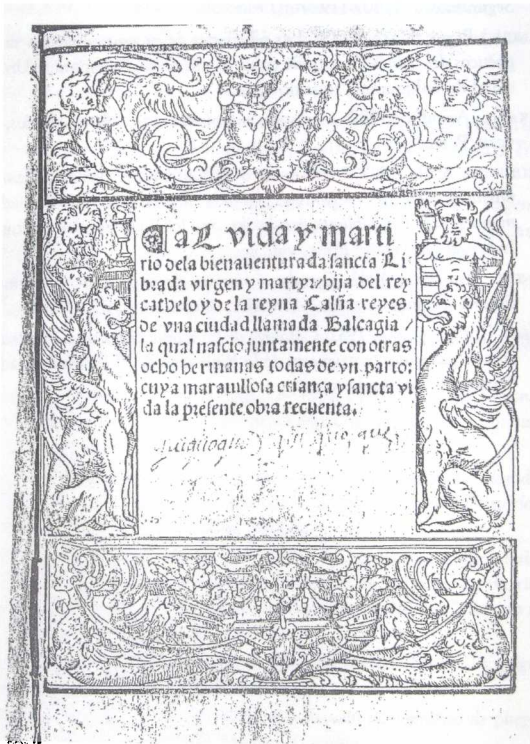 La vida y marti
rio dela bienauenturada sancta Li-
brada virgen y martyr/hija del rey
cathelo y de la reyna Calsia reyes
de vna ciudad llamada Balcagia /
la qual nascio juntamente con otras
ocho hermanas todas de vn parto:
cuya marauillosa criança y sancta vi
da la presente obra recuenta.